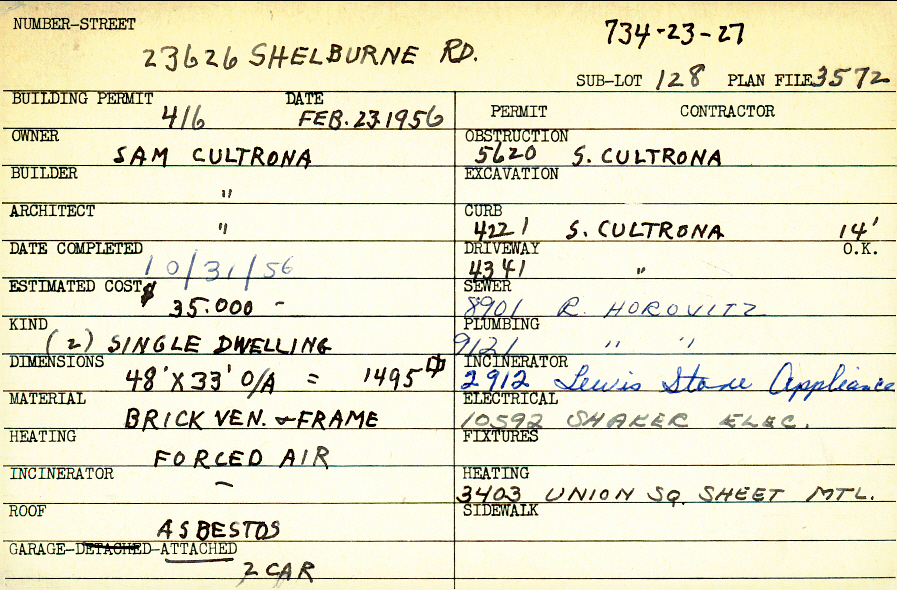 NUMBER-STREET
23626 SHELBURNE RD.
734-23-27
SUB-LOT 128 PLAN FILE 3572
BUILDING PERMIT DATE
416 FEB. 23 1956
OWNER
SAM CULTRONA
BUILDER
"
ARCHITECT
"
DATE COMPLETED
10/31/56
ESTIMATED COST
$35.000 -
KIND
(2) SINGLE DWELLING
DIMENSIONS
48' X 33' O/A = 1495
MATERIAL
BRICK VEN. & FRAME
HEATING
FORCED AIR
INCINERATOR
-
ROOF
ASBESTOS
GARAGE-DETACHED-ATTACHED
2 CAR
PERMIT CONTRACTOR
OBSTRUCTION
5620 S. CULTRONA
EXCAVATION
CURB
4221 S. CULTRONA 14'
DRIVEWAY O.K.
4341 "
SEWER
8901 R. HOROVITZ
PLUMBING
9121 " "
INCINERATOR
2912 Lewis Stove Appliance
ELECTRICAL
10592 SHAKER ELEC.
FIXTURES
HEATING
3403 UNION SQ. SHEET MTL.
SIDEWALK